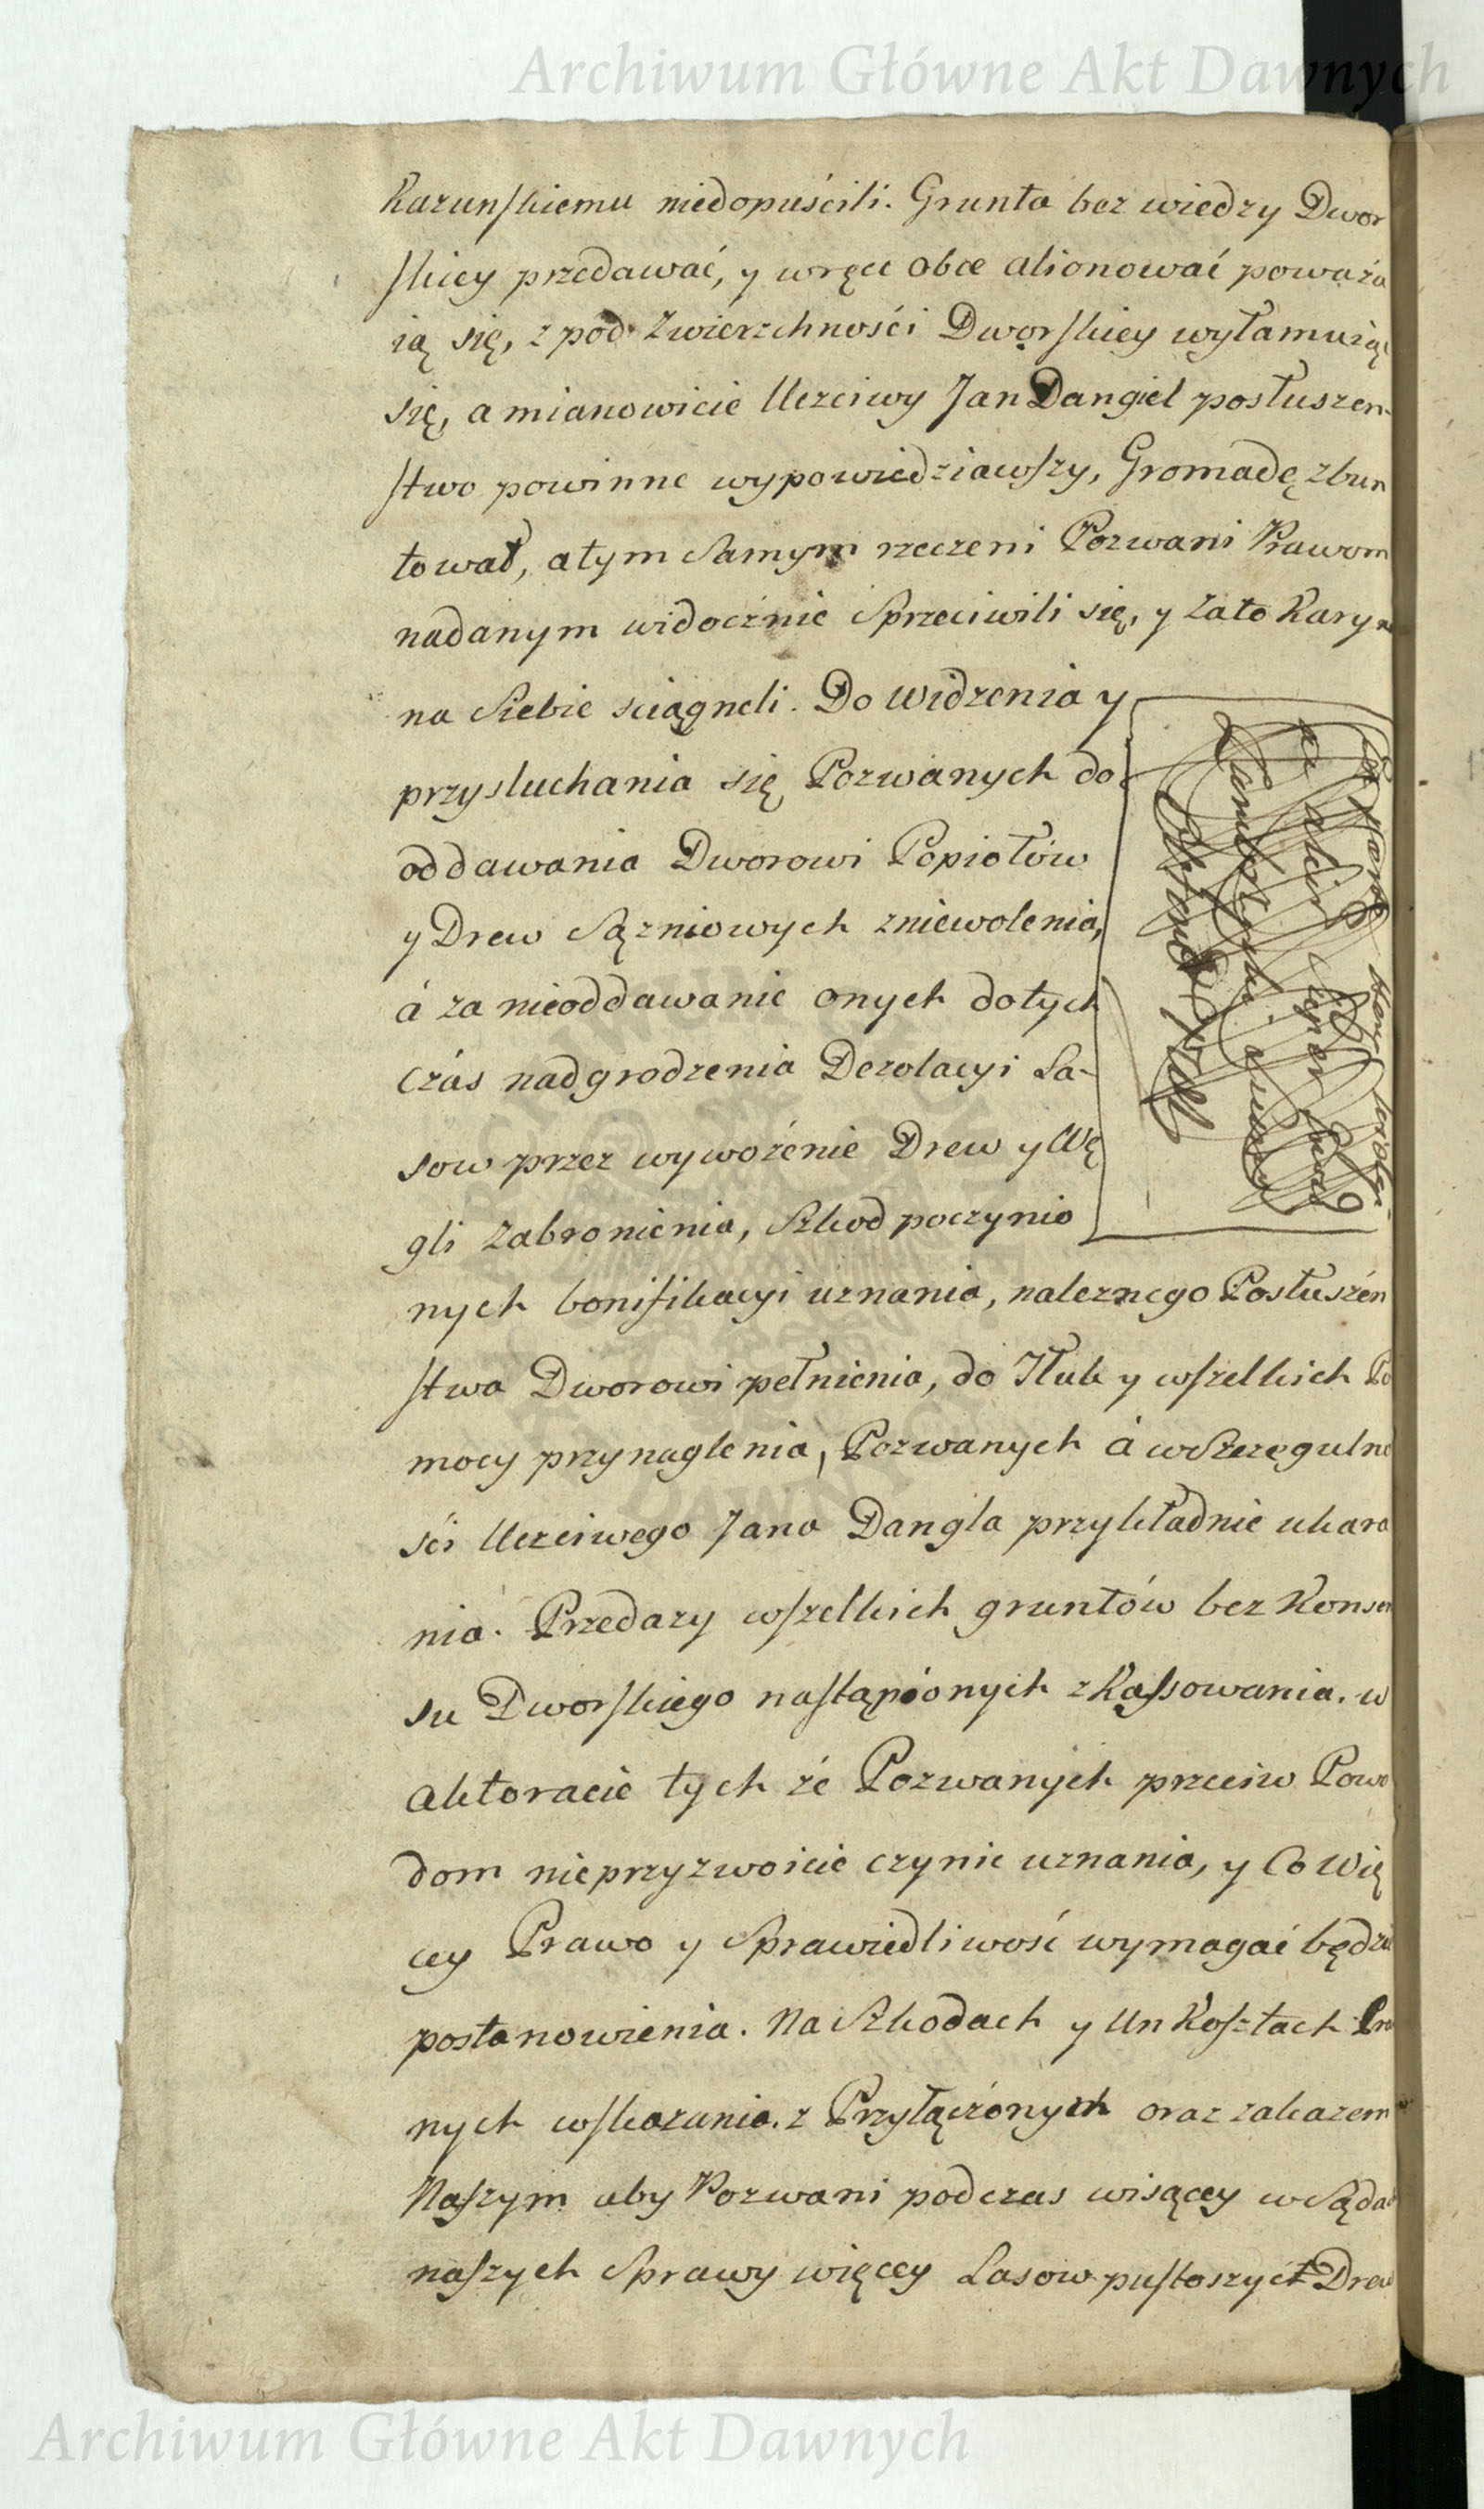 Archiwum Główne Akt Dawnych
Kazunskiemu niedopuścili. Grunta bez wiedzy Dwor
skiey przedawać, y wręce obce alionować poważa
ią się, z pod Zwierzchności Dworskiey wyłamuiąc
się, a mianowicie Uczciwy Jan Dangiel posłuszen-
stwo powinne wypowiedziawszy, Gromadę zbun
tował, a tym Samym rzeczeni Pozwani Prawom
nadanym widocznie Sprzeciwili się, y zato Kary
na Siebie sciągneli. Do Widzenia y
przysłuchania się Pozwanych do
oddawania Dworowi Popiołów
y Drew Sązniowych zniewolenia,
á za nieoddawanie onych dotych
czás nadgrodzenia Dezolacyi La-
sow przez wywożenie Drew y Wę
gli Zabronienia, Szkod poczynio
nych bonifikacyi uznania, naleznego Posłuszen
stwa Dworowi pełnienia, do Tłuk y wszelkich Po
mocy przynaglenia, Pozwanych á wSzczegulno
ści Uczciwego Jana Dangla przykładnie ukara
nia. Przedazy wszelkich gruntów bez Konsen
su Dworskiego nastąpionych zKassowania. w
Aktoracie tych że Pozwanych przeciw Powo
dom nieprzyzwoicie czynic uznania, y Co Wię
cey Prawo y Sprawiedliwość wymagać będzie
postanowienia. Na Szkodach y UnKosztach Pra
nych wskazania. z Przyłączonych oraz zakazem
Naszym aby Pozwani podczas wisącey wSądach
naszych Sprawy więcey Lasow pustoszyć Drew
Archiwum Główne Akt Dawnych